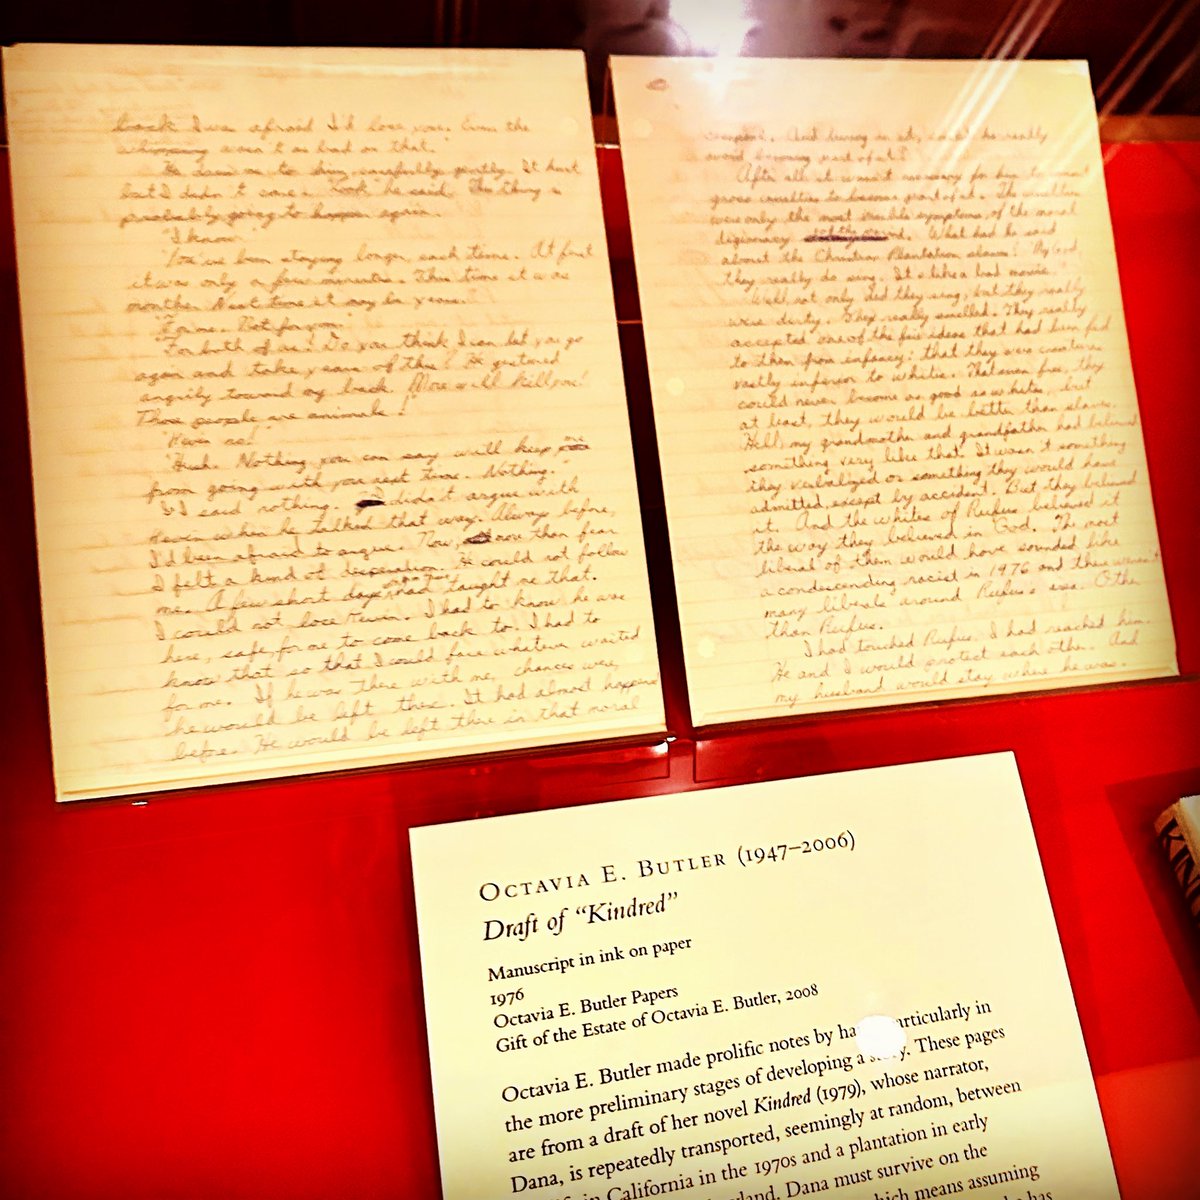 back I was afraid I'd lose you. Even the
whipping wasn't as bad as that.
to
but I didn't "Look" he said. "This thing is
probably going to happen again.
"I know."
"You've been staying longer each time. At first
it was only a few minutes. This time it was
months. Next time it may be years."
"For me. Not for you."
"For both of us! Do you think I can let you go
again and take years of this? He gestured
angrily toward my back. More will kill you!
Those people are animals!
"Kevin no!"
"Hush. Nothing you can say will keep me
from going with you next time. Nothing."
I said nothing. I didn't argue with
Kevin when he talked that way. Always before,
I'd been afraid to argue. Now, more than fear
I felt a kind of desperation. He could not follow
me. A few short days had taught me that.
I could not lose Kevin. I had to know he was
here, safe, for me to come back to. I had to
know that so that I could face whatever waited
for me. If he was there with me, chances were,
he would be left there. It had almost happened
before. He would be left there in that moral
And living in it, could he really
avoid becoming part of it?
After all it wasn't necessary for him to
gross cruelties to become part of it. The cruelties
were only the most visible symptoms of the moral
What had he said
about the Christmas Plantation slaves? "My God
they really do sing. It's like a bad movie."
Well not only did they sing, but they really
were dirty. They really smelled. They really
accepted one of the few ideas that had been fed
to them from infancy: that they were creatures
vastly inferior to whites. That even free, they
could never become as good as whites, but
at least, they would be better than slaves.
Hell, my grandmother and grandfather had believed
something very like that. It wasn't something
they verbalized or something they would have
admitted, except by accident. But they believed
it. And the whites of Rufus believed it
the way they believed in God. The most
liberal of them would have sounded like
a condescending racist in 1976 and there weren't
many liberals around Rufus's era. Other
than Rufus.
I had touched Rufus. I had reached him.
He and I would protect each other. And
my husband would stay where he was.
OCTAVIA E. BUTLER (1947–2006)
Draft of "Kindred"
Manuscript in ink on paper
1976
Octavia E. Butler Papers
Gift of the Estate of Octavia E. Butler, 2008
Octavia E. Butler made prolific notes by particularly in
the more preliminary stages of developing a story. These pages
are from a draft of her novel Kindred (1979), whose narrator,
Dana, is repeatedly transported, seemingly at random, between
in California in the 1970s and a plantation in early
Dana must survive on the
which means assuming
has
KIN